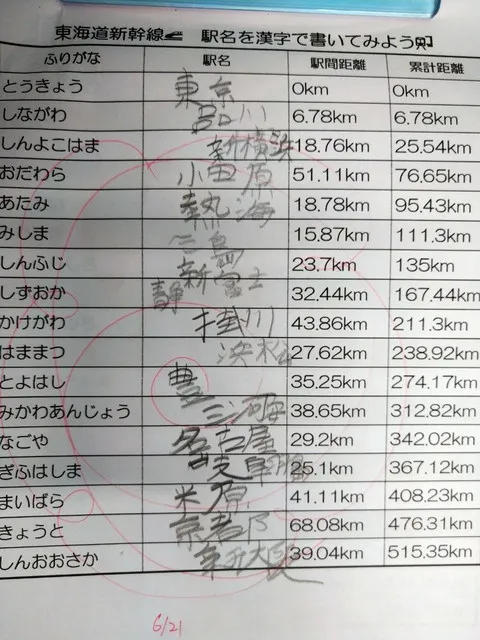 東海道新幹線🚅 駅名を漢字で書いてみよう
ふりがな 駅名 駅間距離 累計距離
とうきょう 東京 0km 0km
しながわ 品川 6.78km 6.78km
しんよこはま 新横浜 18.76km 25.54km
おだわら 小田原 51.11km 76.65km
あたみ 熱海 18.78km 95.43km
みしま 三島 15.87km 111.3km
しんふじ 新富士 23.7km 135km
しずおか 静 32.44km 167.44km
かけがわ 掛川 43.86km 211.3km
はままつ 浜松 27.62km 238.92km
とよはし 豊 35.25km 274.17km
みかわあんじょう 三河安 38.65km 312.82km
なごや 名古屋 29.2km 342.02km
ぎふはしま 岐阜羽島 25.1km 367.12km
まいばら 米原 41.11km 408.23km
きょうと 京都 68.08km 476.31km
しんおおさか 新大阪 39.04km 515.35km
6/21